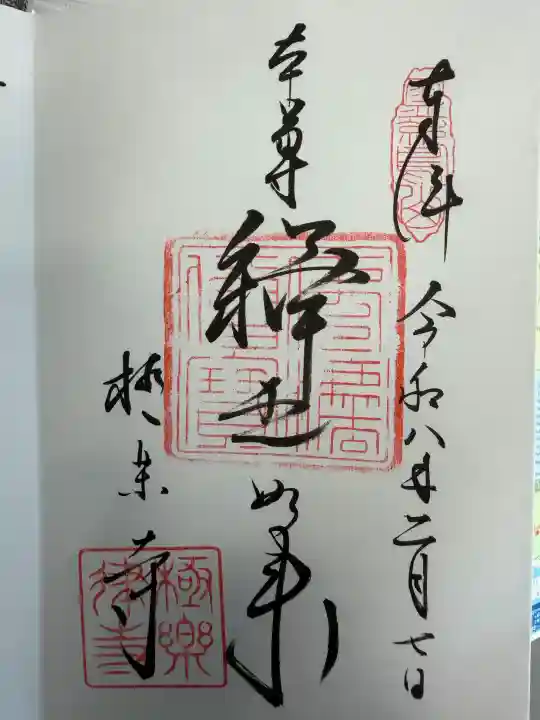 奉拝 令和八年二月七日
本尊 釋迦如来
極楽寺
極樂律寺